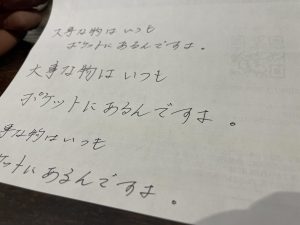 大事な物は いつも
ポケットにあるんですよ。
大事な物は いつも
ポケットにあるんですよ。
事な物は いつも
ケットにあるんですよ。